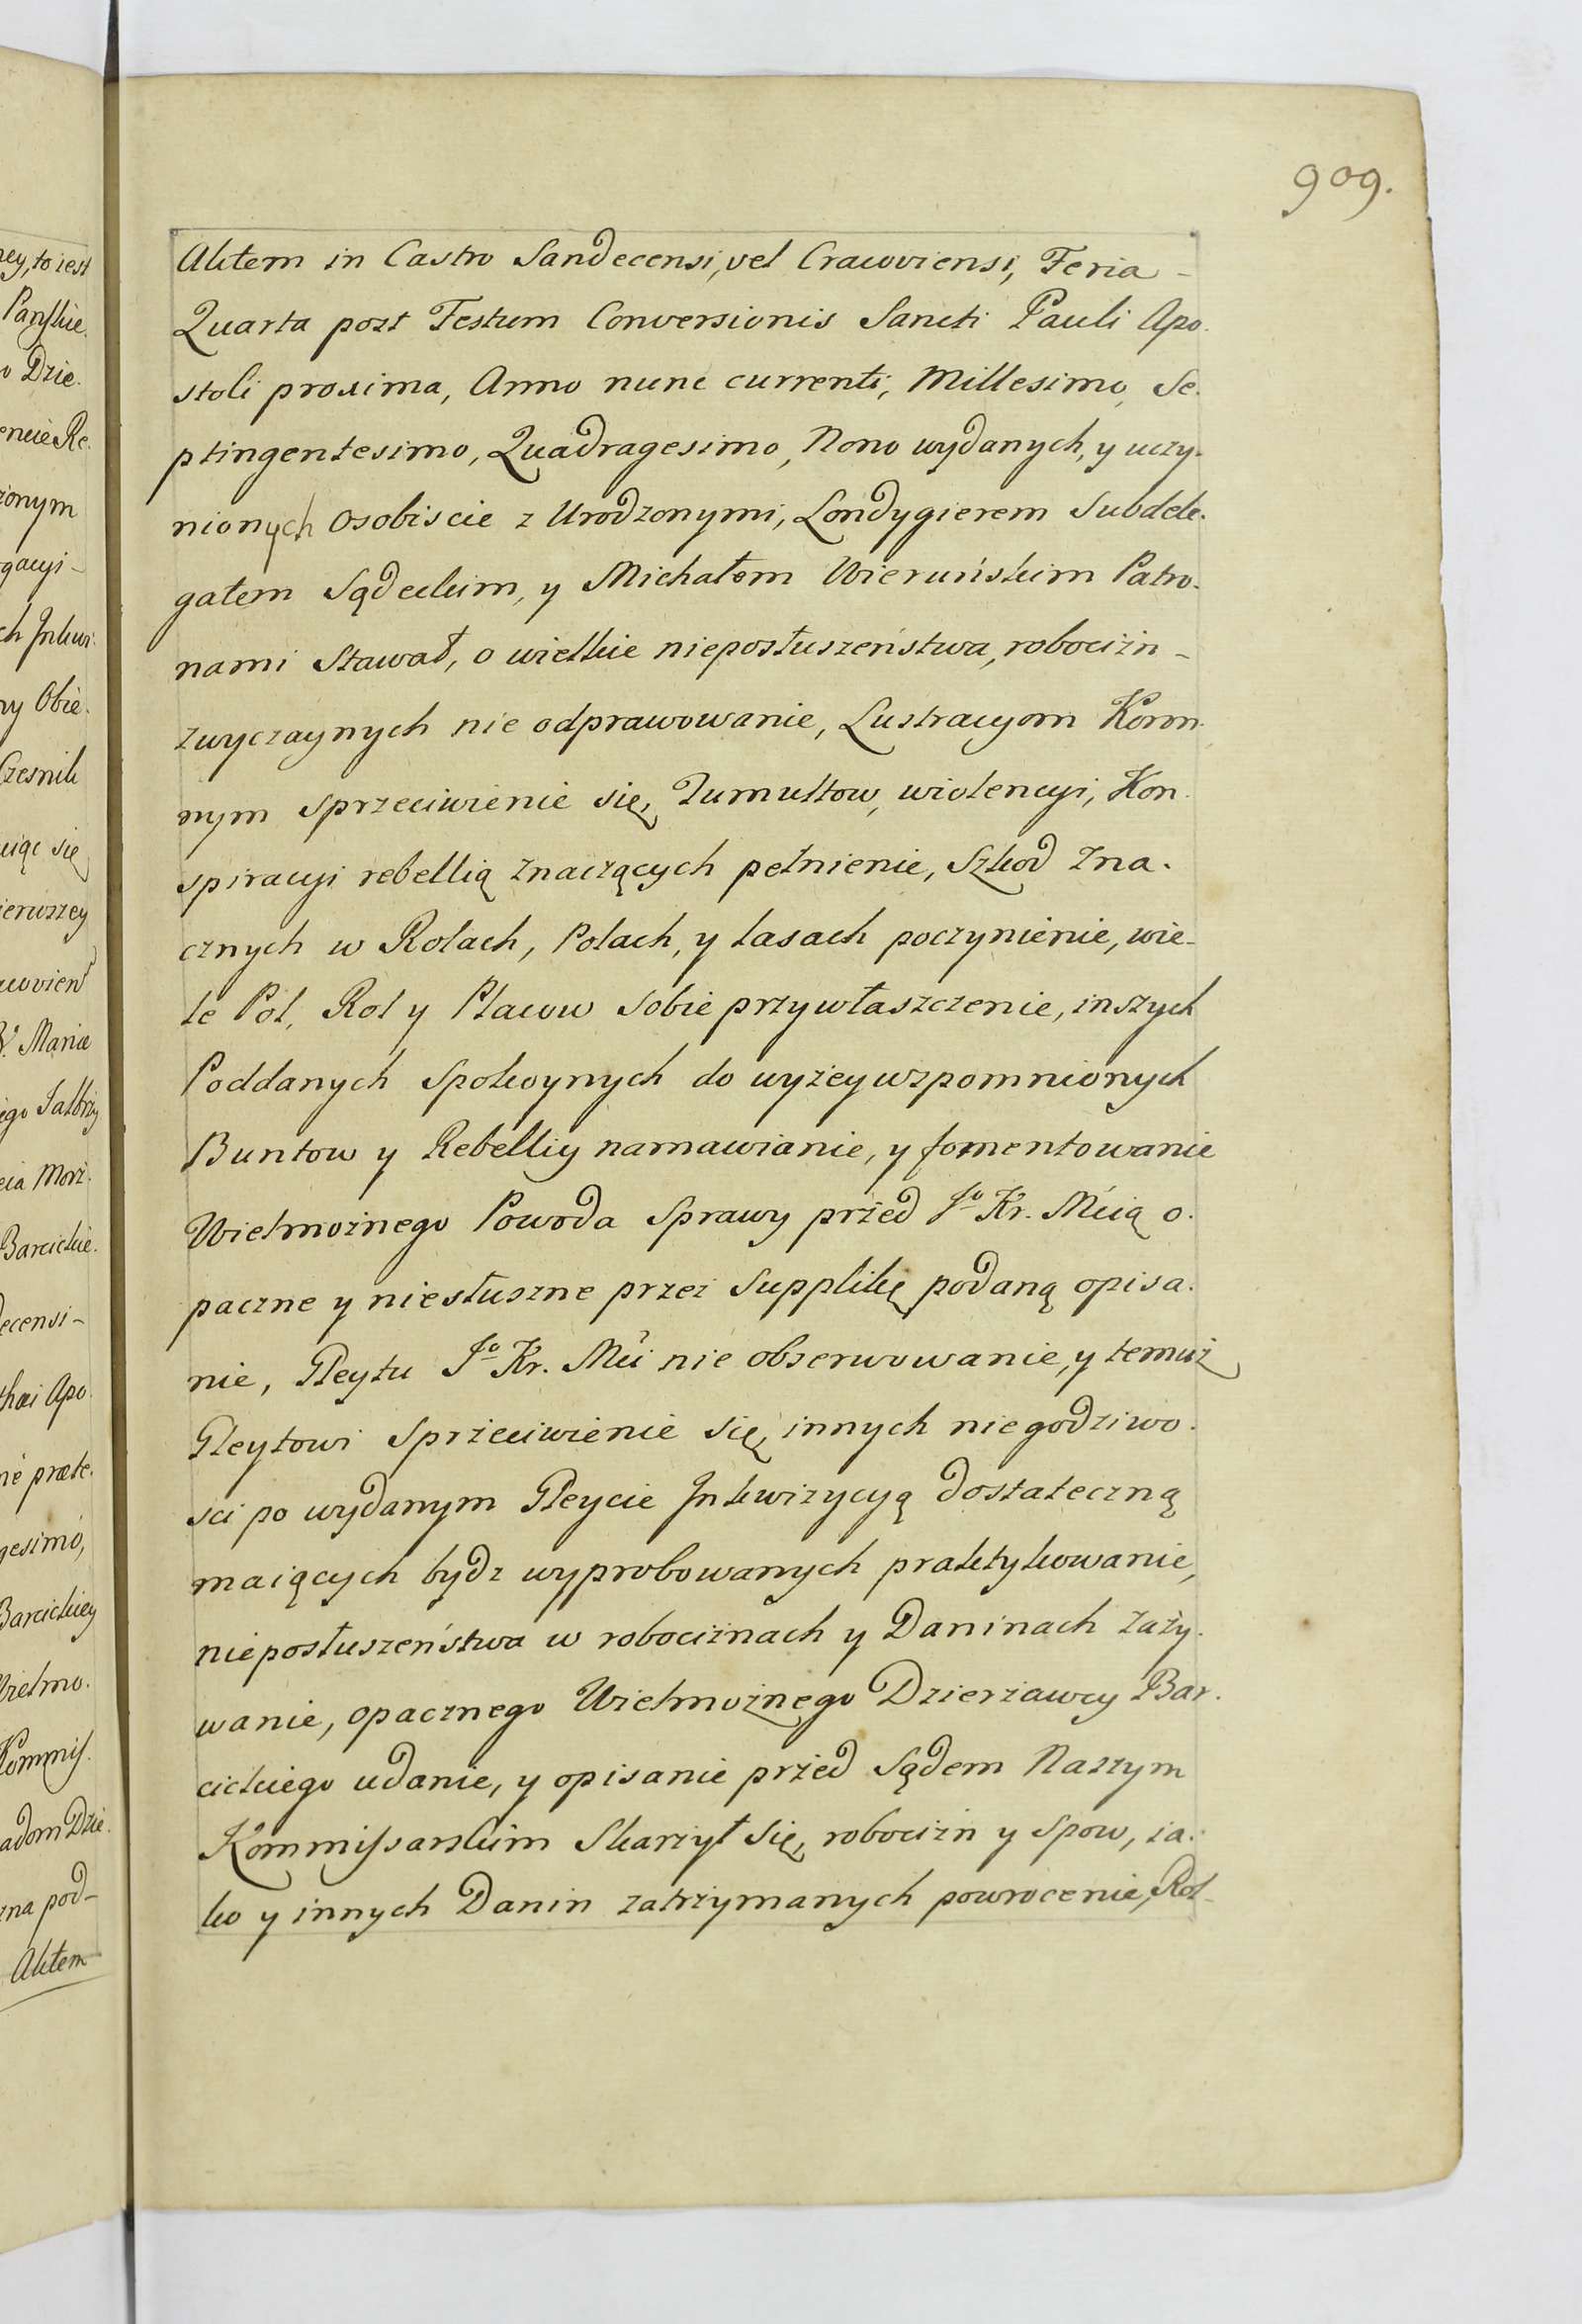 909.
Aktem in Castro Sandecensi, vel Cracoviensi, Feria -
Quarta post Festum Conversionis Sancti Pauli Apo.
stoli proxima, Anno nunc currenti, Millesimo, Se.
ptingentesimo, Quadragesimo, Nono wydanych, y uczy.
nionych osobiscie z Urodzonymi, Londygierem Subdele.
gatem Sądeckim, y Michałem Wieruńskim Patro.
nami Stawał, o wielkie nieposłuszeństwa, robocizn -
zwyczaynych nie odprawowanie, Lustracyom Koron.
nym sprzeciwienie się, Tumultow, wiolencyi, Kon.
spiracyi rebellią znaczących pełnienie, Szkod zna.
cznych w Rolach, Polach, y lasach poczynienie, wie-
le Pol, Rol y Placow sobie przywłaszczenie, inszych
Poddanych spokoynych do wyżeywzpomnionych
Buntow y Rebelliy namawianie, y fomentowanie
Wielmożnego Powoda Sprawy przed Jo Kr. Mcią o.
paczne y niesłuszne przez Supplikę podaną opisa.
nie, Gleytu Jo Kr. Mci nie obserwowanie, y temuż
Gleytowi sprzeciwienie się, innych niegodziwo.
sci po wydanym Gleycie Inkwizycyą dostateczną
maiących bydz wyprobowanych praktykowanie,
nieposłuszeństwa w robociznach y Daninach zaży.
wanie, opacznego Wielmożnego Dzierżawcy Bar.
cickiego udanie, y opisanie przed Sądem Naszym
Kommissarskim Skarżył się, robocizn y spow, ia.
ko y innych Danin zatrzymanych powrocenie, Rol-
ney, to iest
Panskie.
o Dzie.
Czesnik
iąc się
ierwszey
Barcickie.
decensi -
thæi Apo.
gesimo,
Barcickiey
Wielmo.
Kommis.
adom Dzie.
zna pod -
Aktem